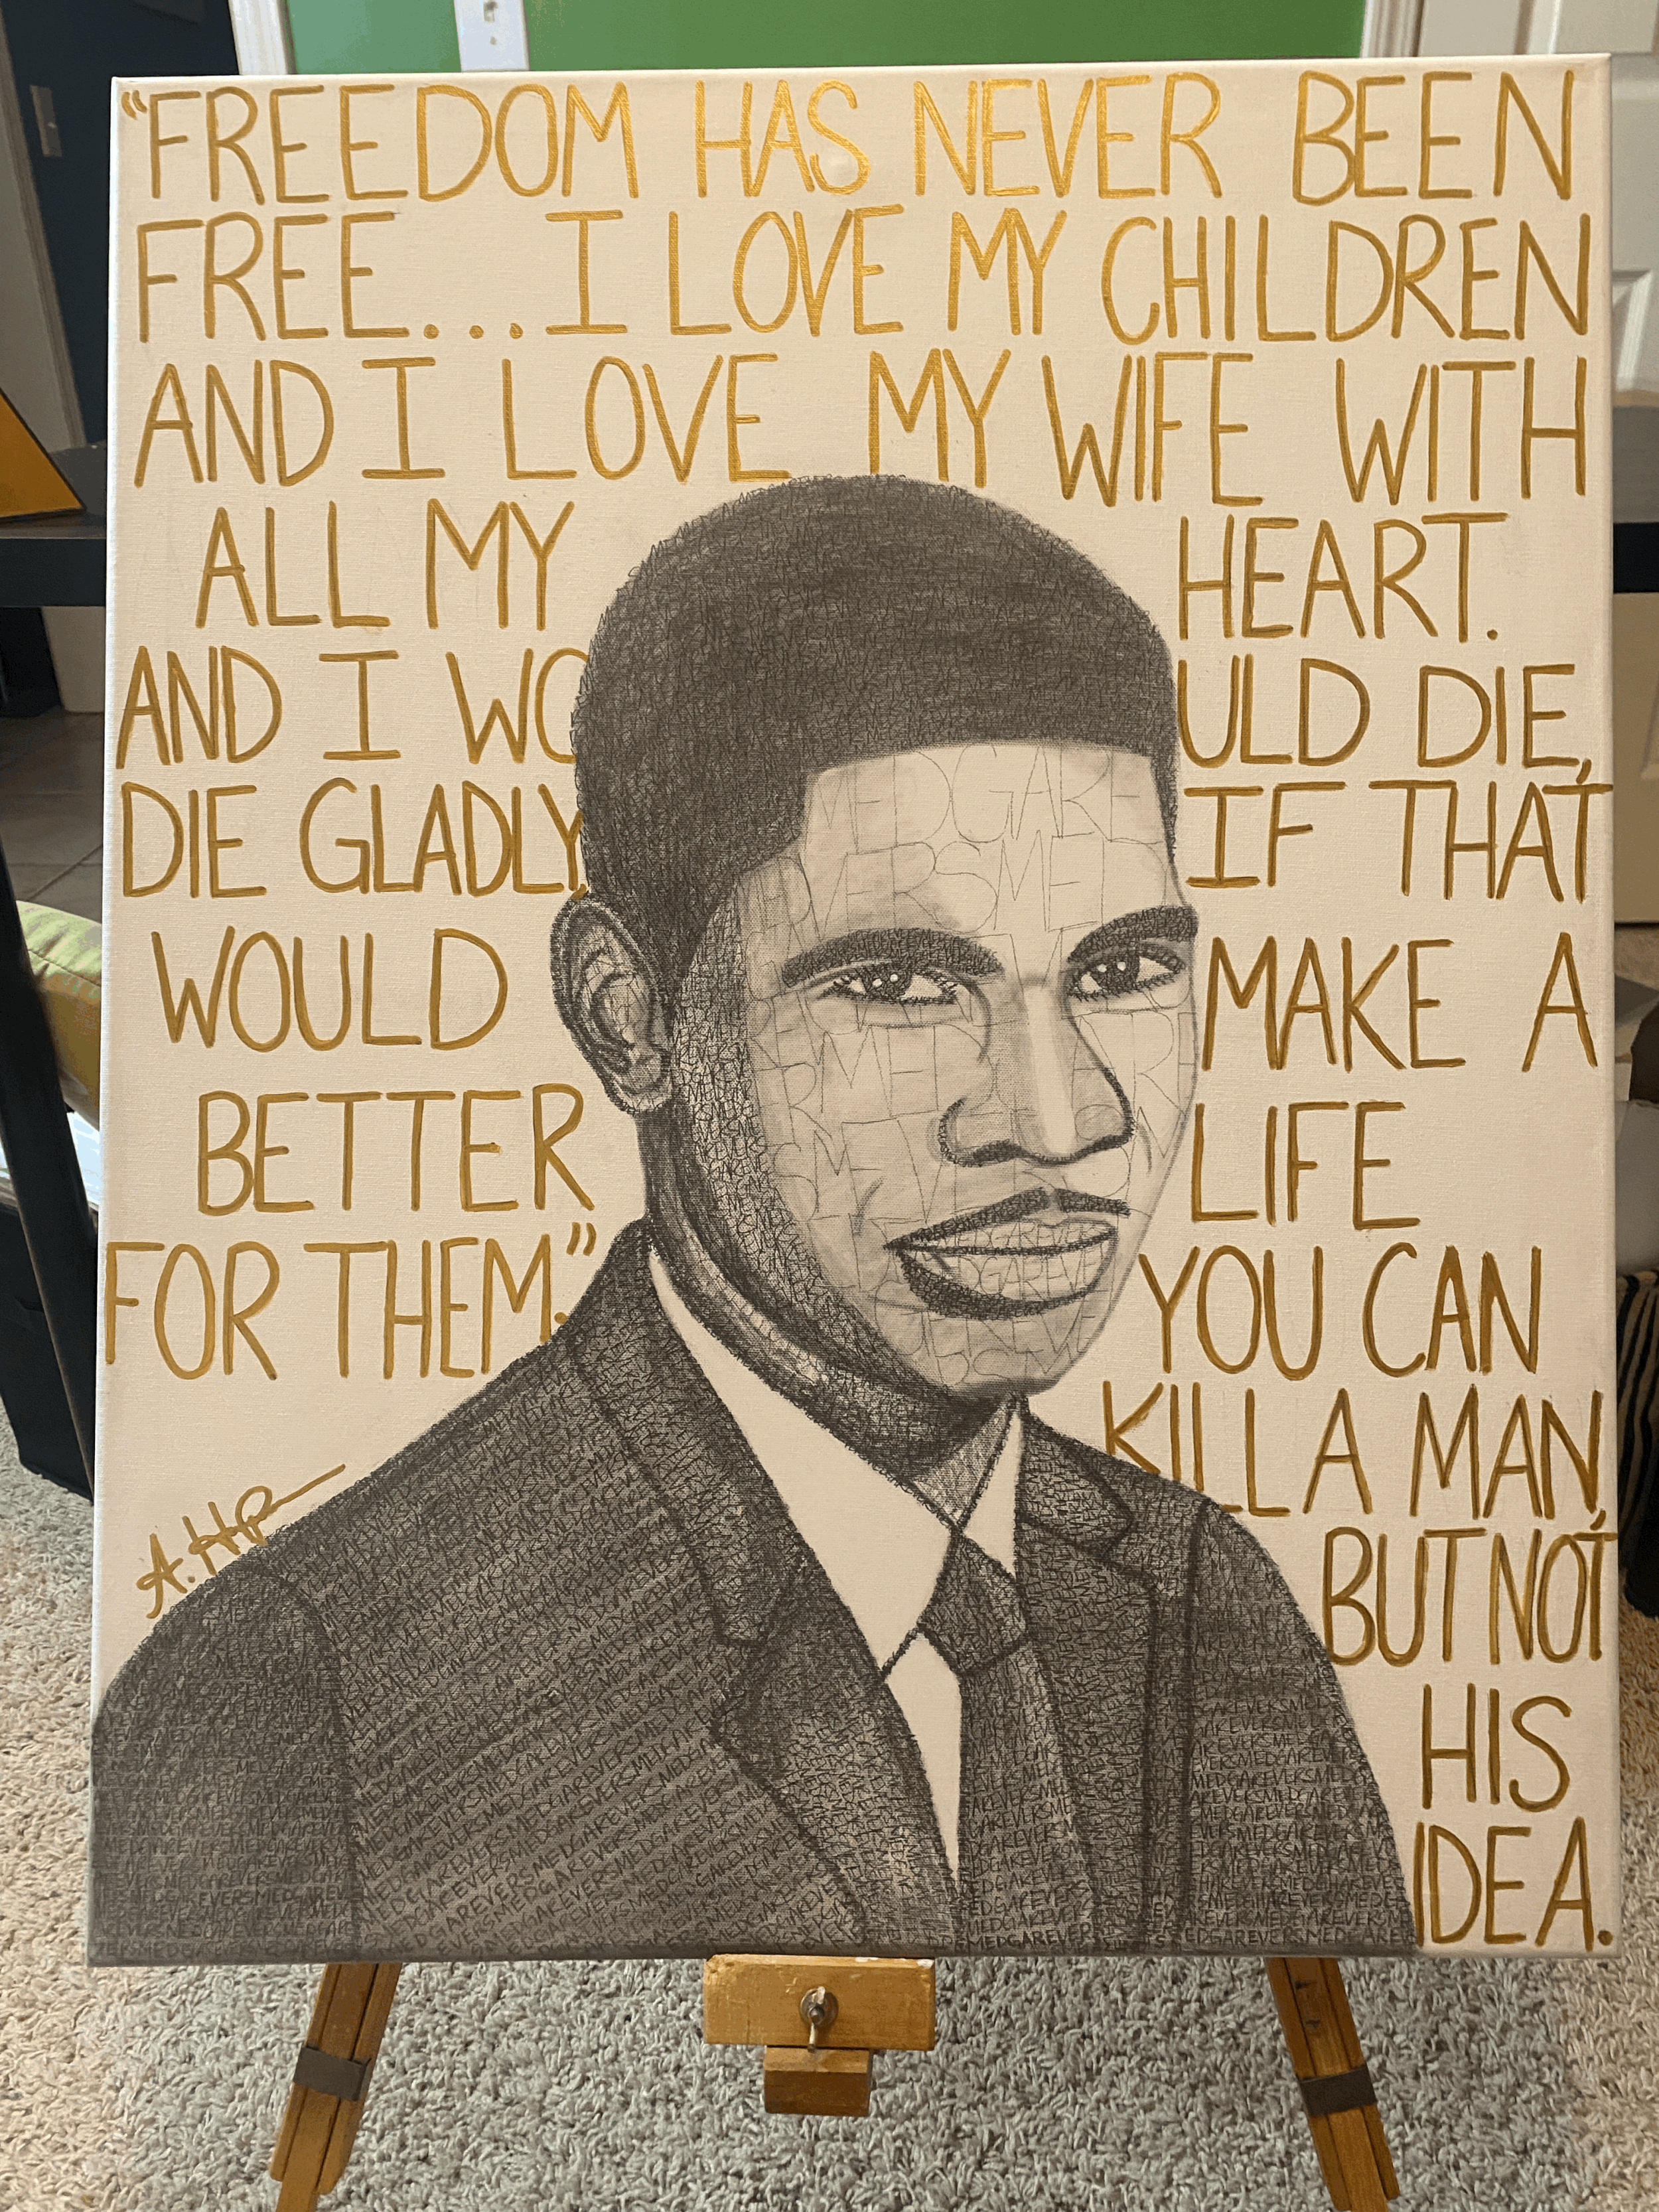 “FREEDOM HAS NEVER BEEN
FREE...I LOVE MY CHILDREN
AND I LOVE MY WIFE WITH
ALL MY HEART.
AND I WOULD DIE,
DIE GLADLY, IF THAT
WOULD MAKE A
BETTER LIFE
FOR THEM.”
YOU CAN
KILL A MAN,
BUT NOT
HIS
IDEA.
MEDGAR
EVERS